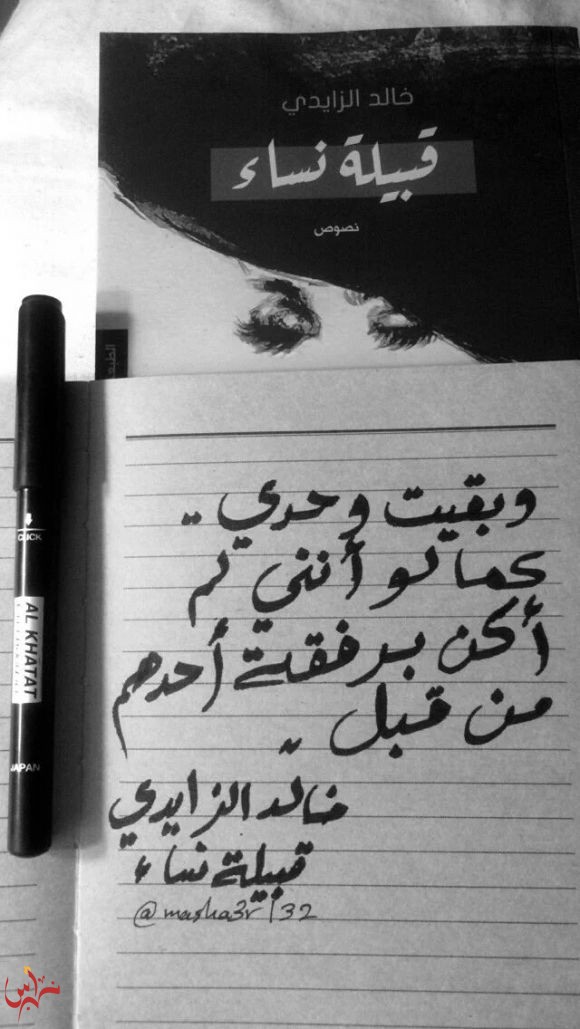 خالد الزايدي
قبيلة نساء
نصوص
CLICK
AL KHATAT
JAPAN
وبقيت وحدي ..
كما لو أنني لم
أكن برفقة أحدهم
من قبل ..
خالد الزايدي
قبيلة نساء
@masha3r | 32